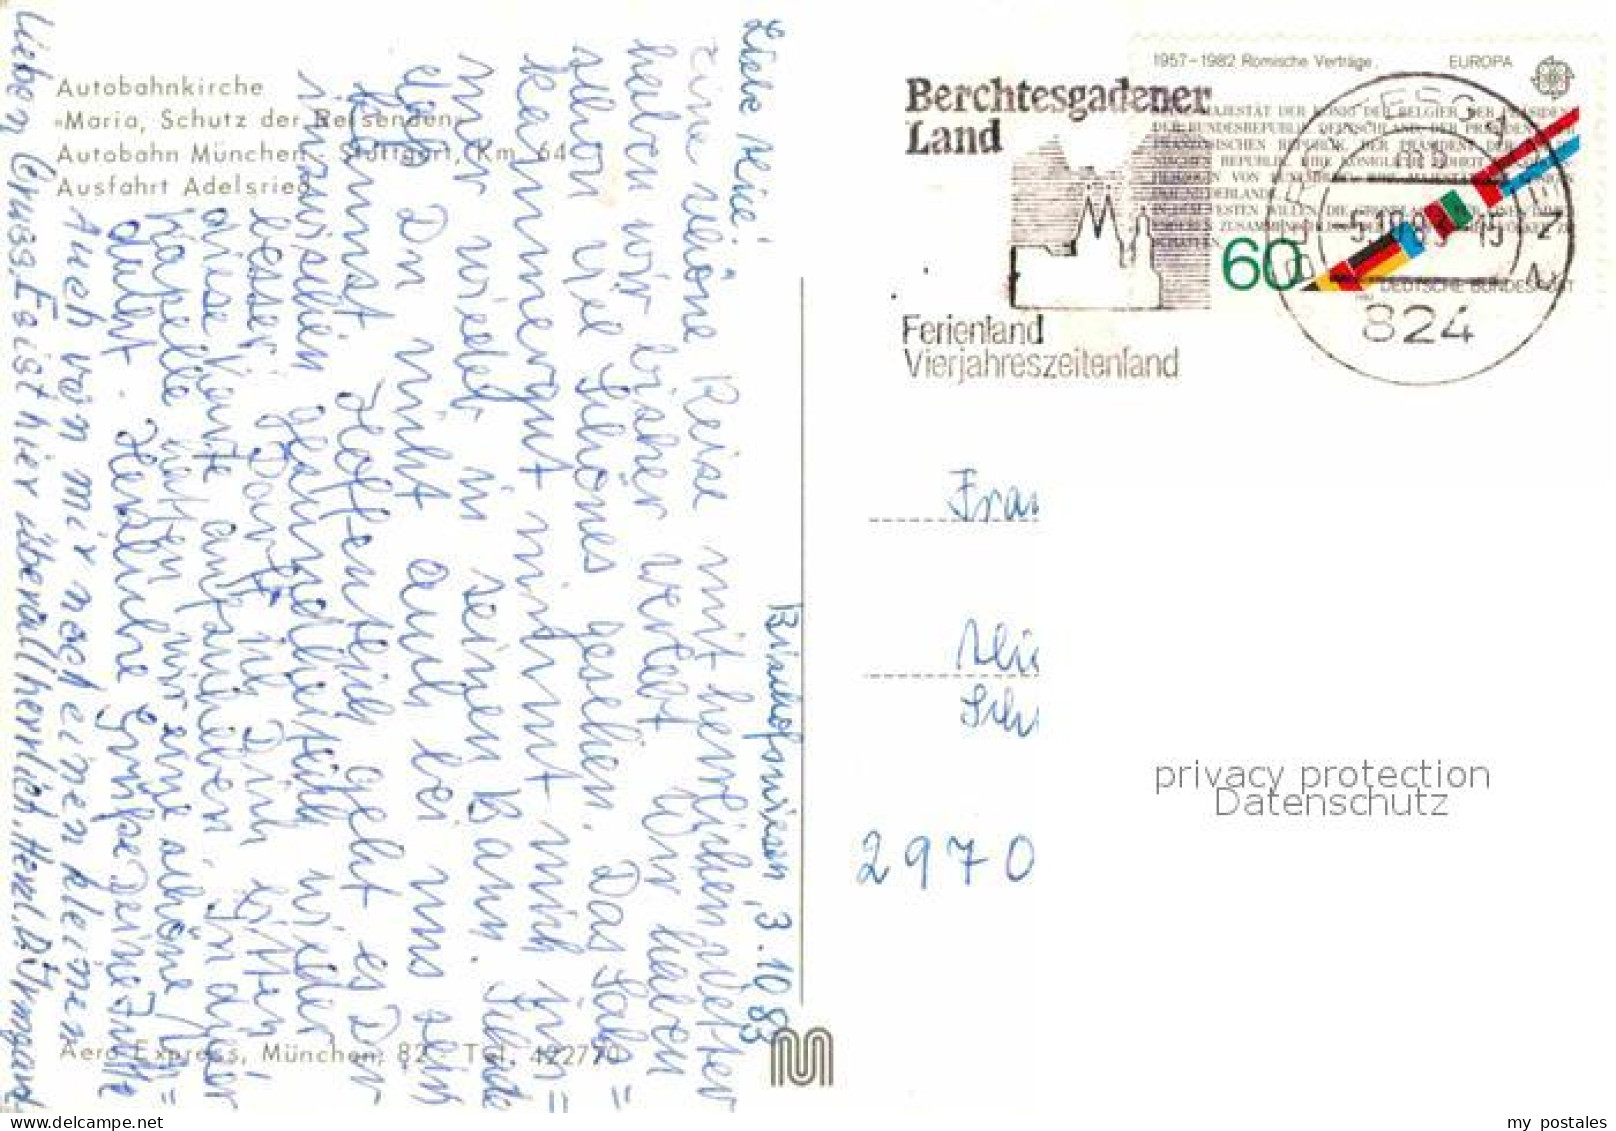 Autobahnkirche
«Maria, Schutz der Reisenden»
Autobahn München - Stuttgart, Km 64
Ausfahrt Adelsried
Bischofswiesen, 3.10.83
Liebe Alice!
Eine schöne Reise mit herrlichem Wetter
haben wir bisher verlebt. Wir haben
schon viel Schönes gesehen. Das Salz=
kammergut nimmt mich im=
mer wieder in seinen Bann. Schade
daß Du nicht auch bei uns sein
kannst. Hoffentlich geht es Dir
inzwischen gesundheitlich wieder
besser. Darf ich Dich bitten,
diese Karte aufzuheben. In dieser
Kapelle hatten wir eine schöne An=
dacht. Herzliche Grüße Deine Jutta
Auch von mir noch einen kleinen
lieben Gruss. Es ist hier überall herrlich. Herzl. D.
Aero Express, München 82 · Tel. 422770
Berchtesgadener
Land
Ferienland
Vierjahreszeitenland
1957-1982 Römische Verträge. EUROPA
60
DEUTSCHE BUNDESPOST
824
Frau
2970
privacy protection
Datenschutz
my postales